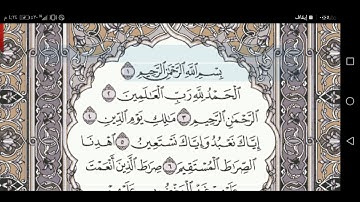 إيقاف
بِسْمِ ٱللَّهِ ٱلرَّحْمَٰنِ ٱلرَّحِيمِ ١
ٱلْحَمْدُ لِلَّهِ رَبِّ ٱلْعَٰلَمِينَ ٢
ٱلرَّحْمَٰنِ ٱلرَّحِيمِ ٣ مَٰلِكِ يَوْمِ ٱلدِّينِ ٤
إِيَّاكَ نَعْبُدُ وَإِيَّاكَ نَسْتَعِينُ ٥ ٱهْدِنَا
ٱلصِّرَٰطَ ٱلْمُسْتَقِيمَ ٦ صِرَٰطَ ٱلَّذِينَ أَنْعَمْتَ